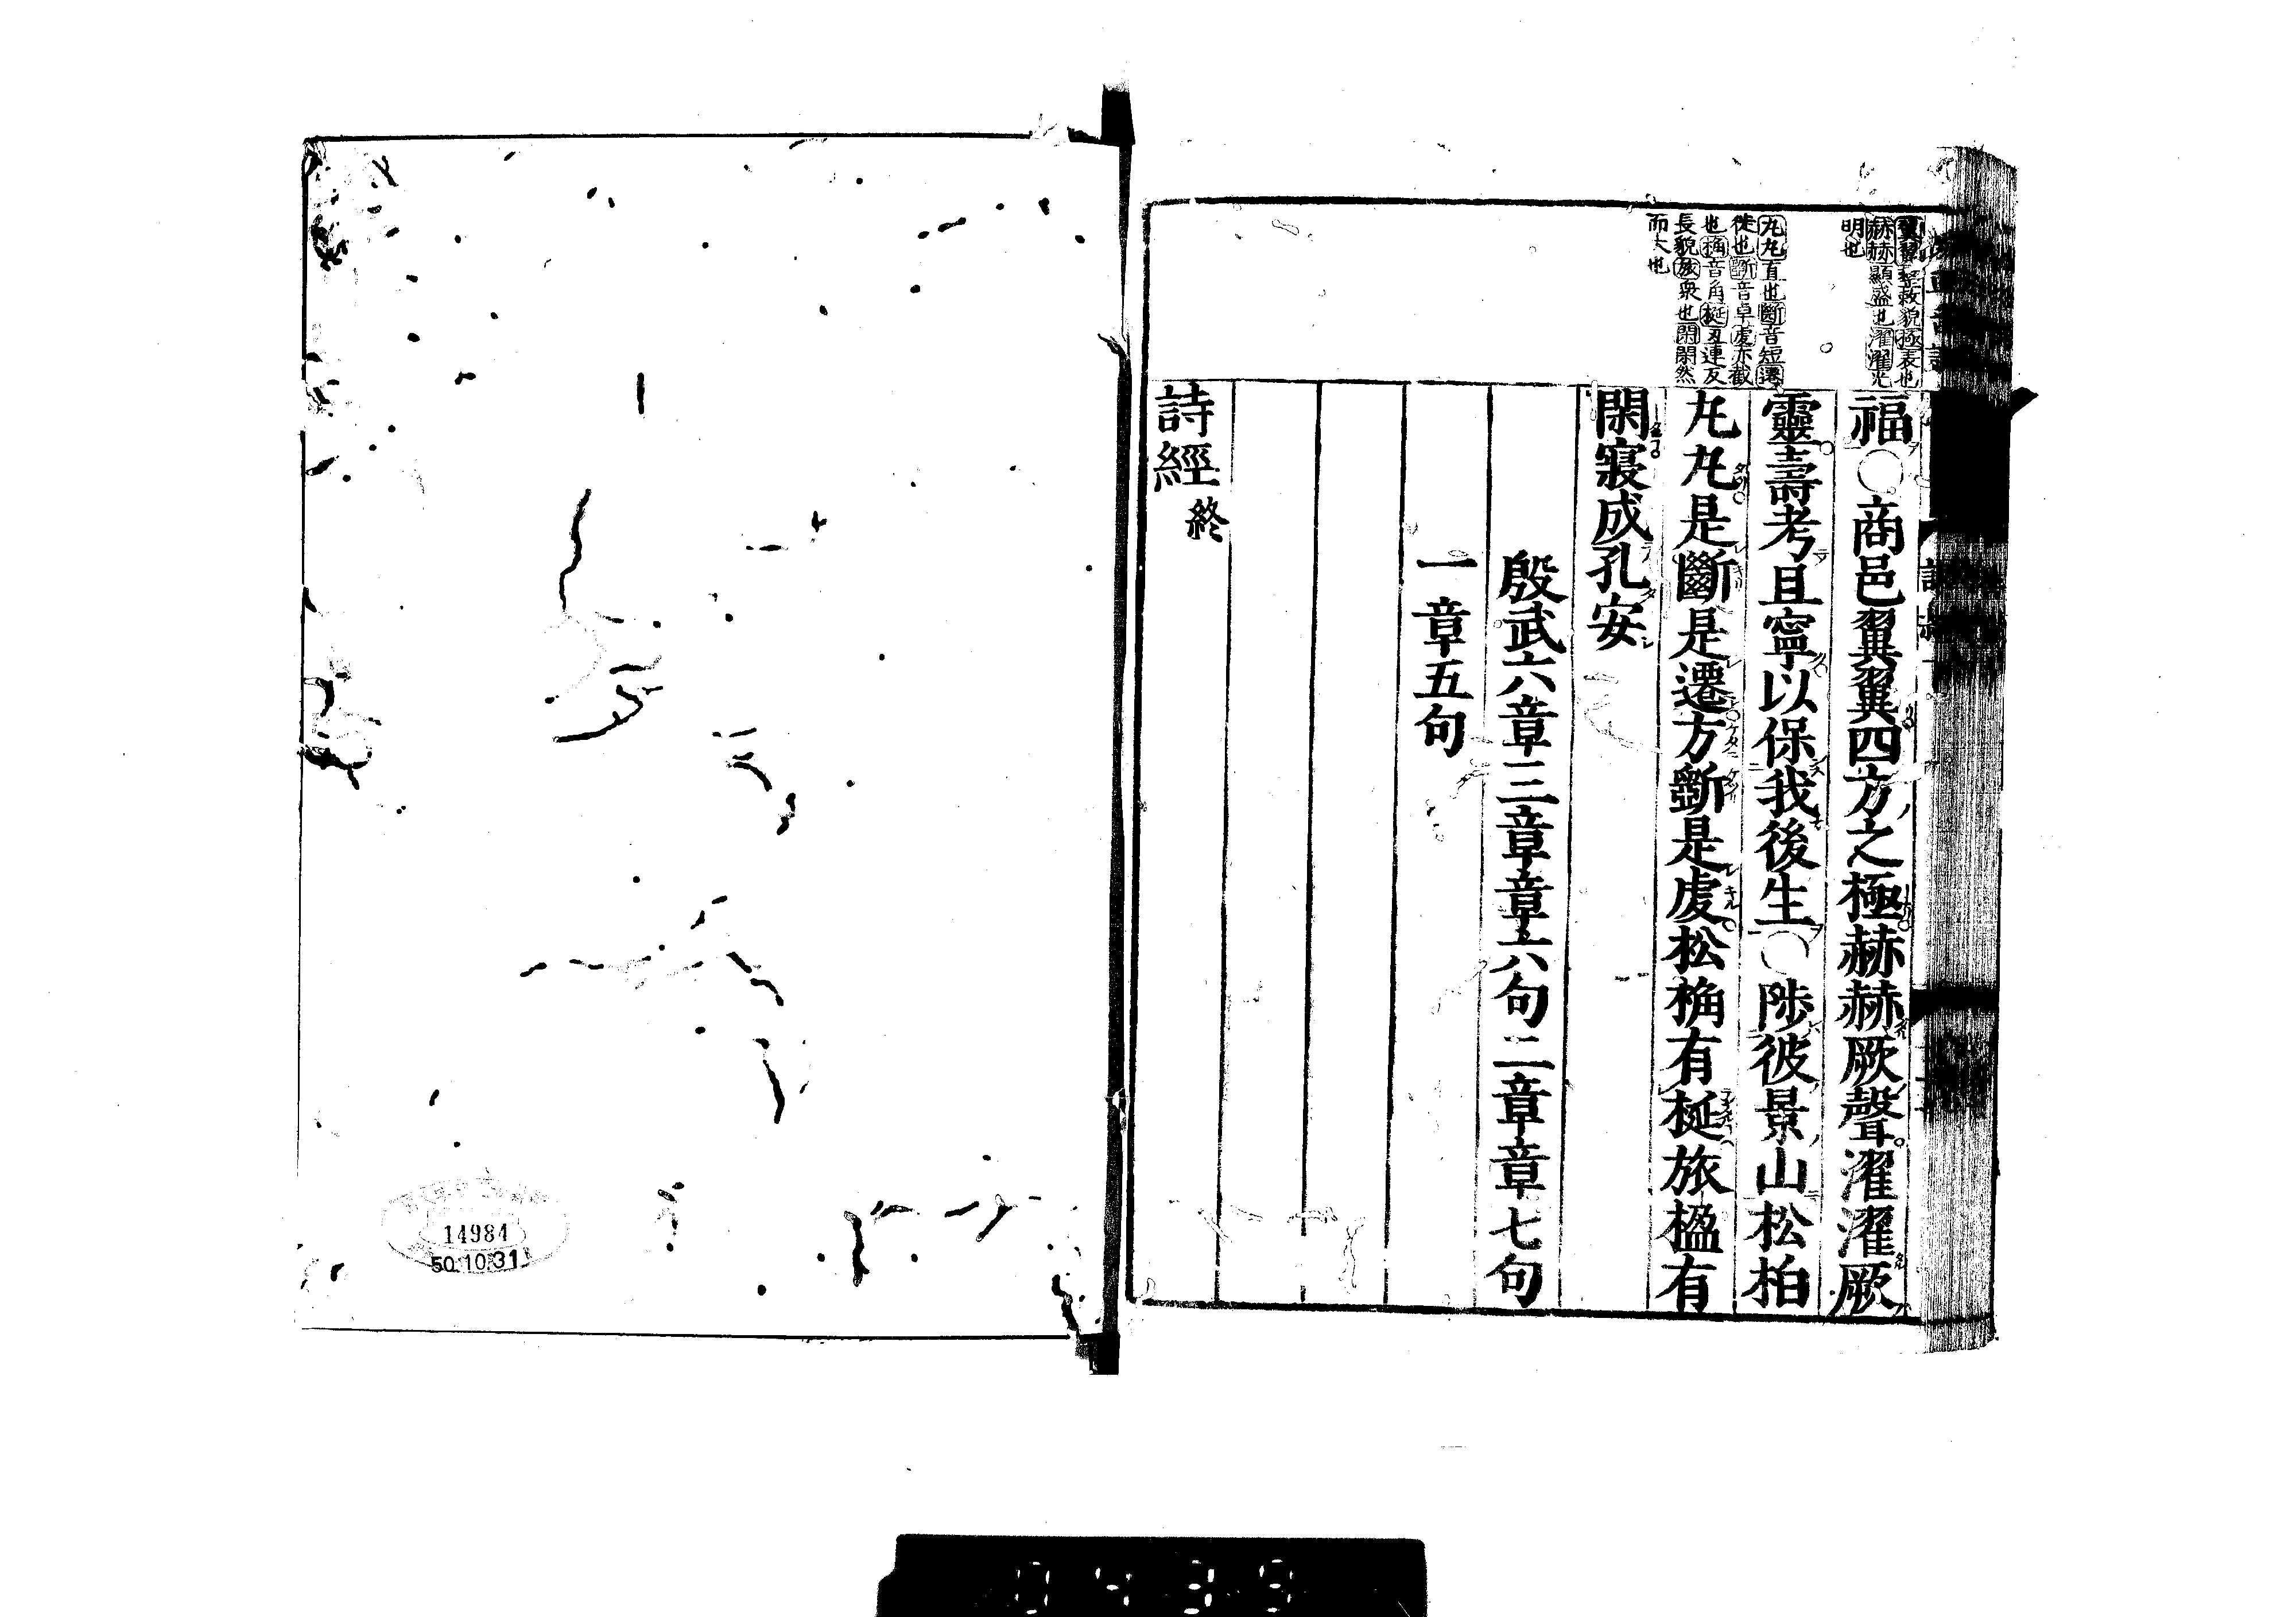 翼翼整敕貌極表也
赫赫顯盛也濯濯光
明也
丸丸直也斷音短遷
徙也斲音卓虔亦截
也桷音角梴丑連反
長貌旅衆也閑閑然
而大也
福○商邑翼翼四方之極赫赫厥聲濯濯厥
靈壽考且寧以保我後生○陟彼景山松柏
丸丸是斷是遷方斲是虔松桷有梴旅楹有
閑寢成孔安
殷武六章三章章六句二章章七句
一章五句
詩經終
14984
50.10.31
0439